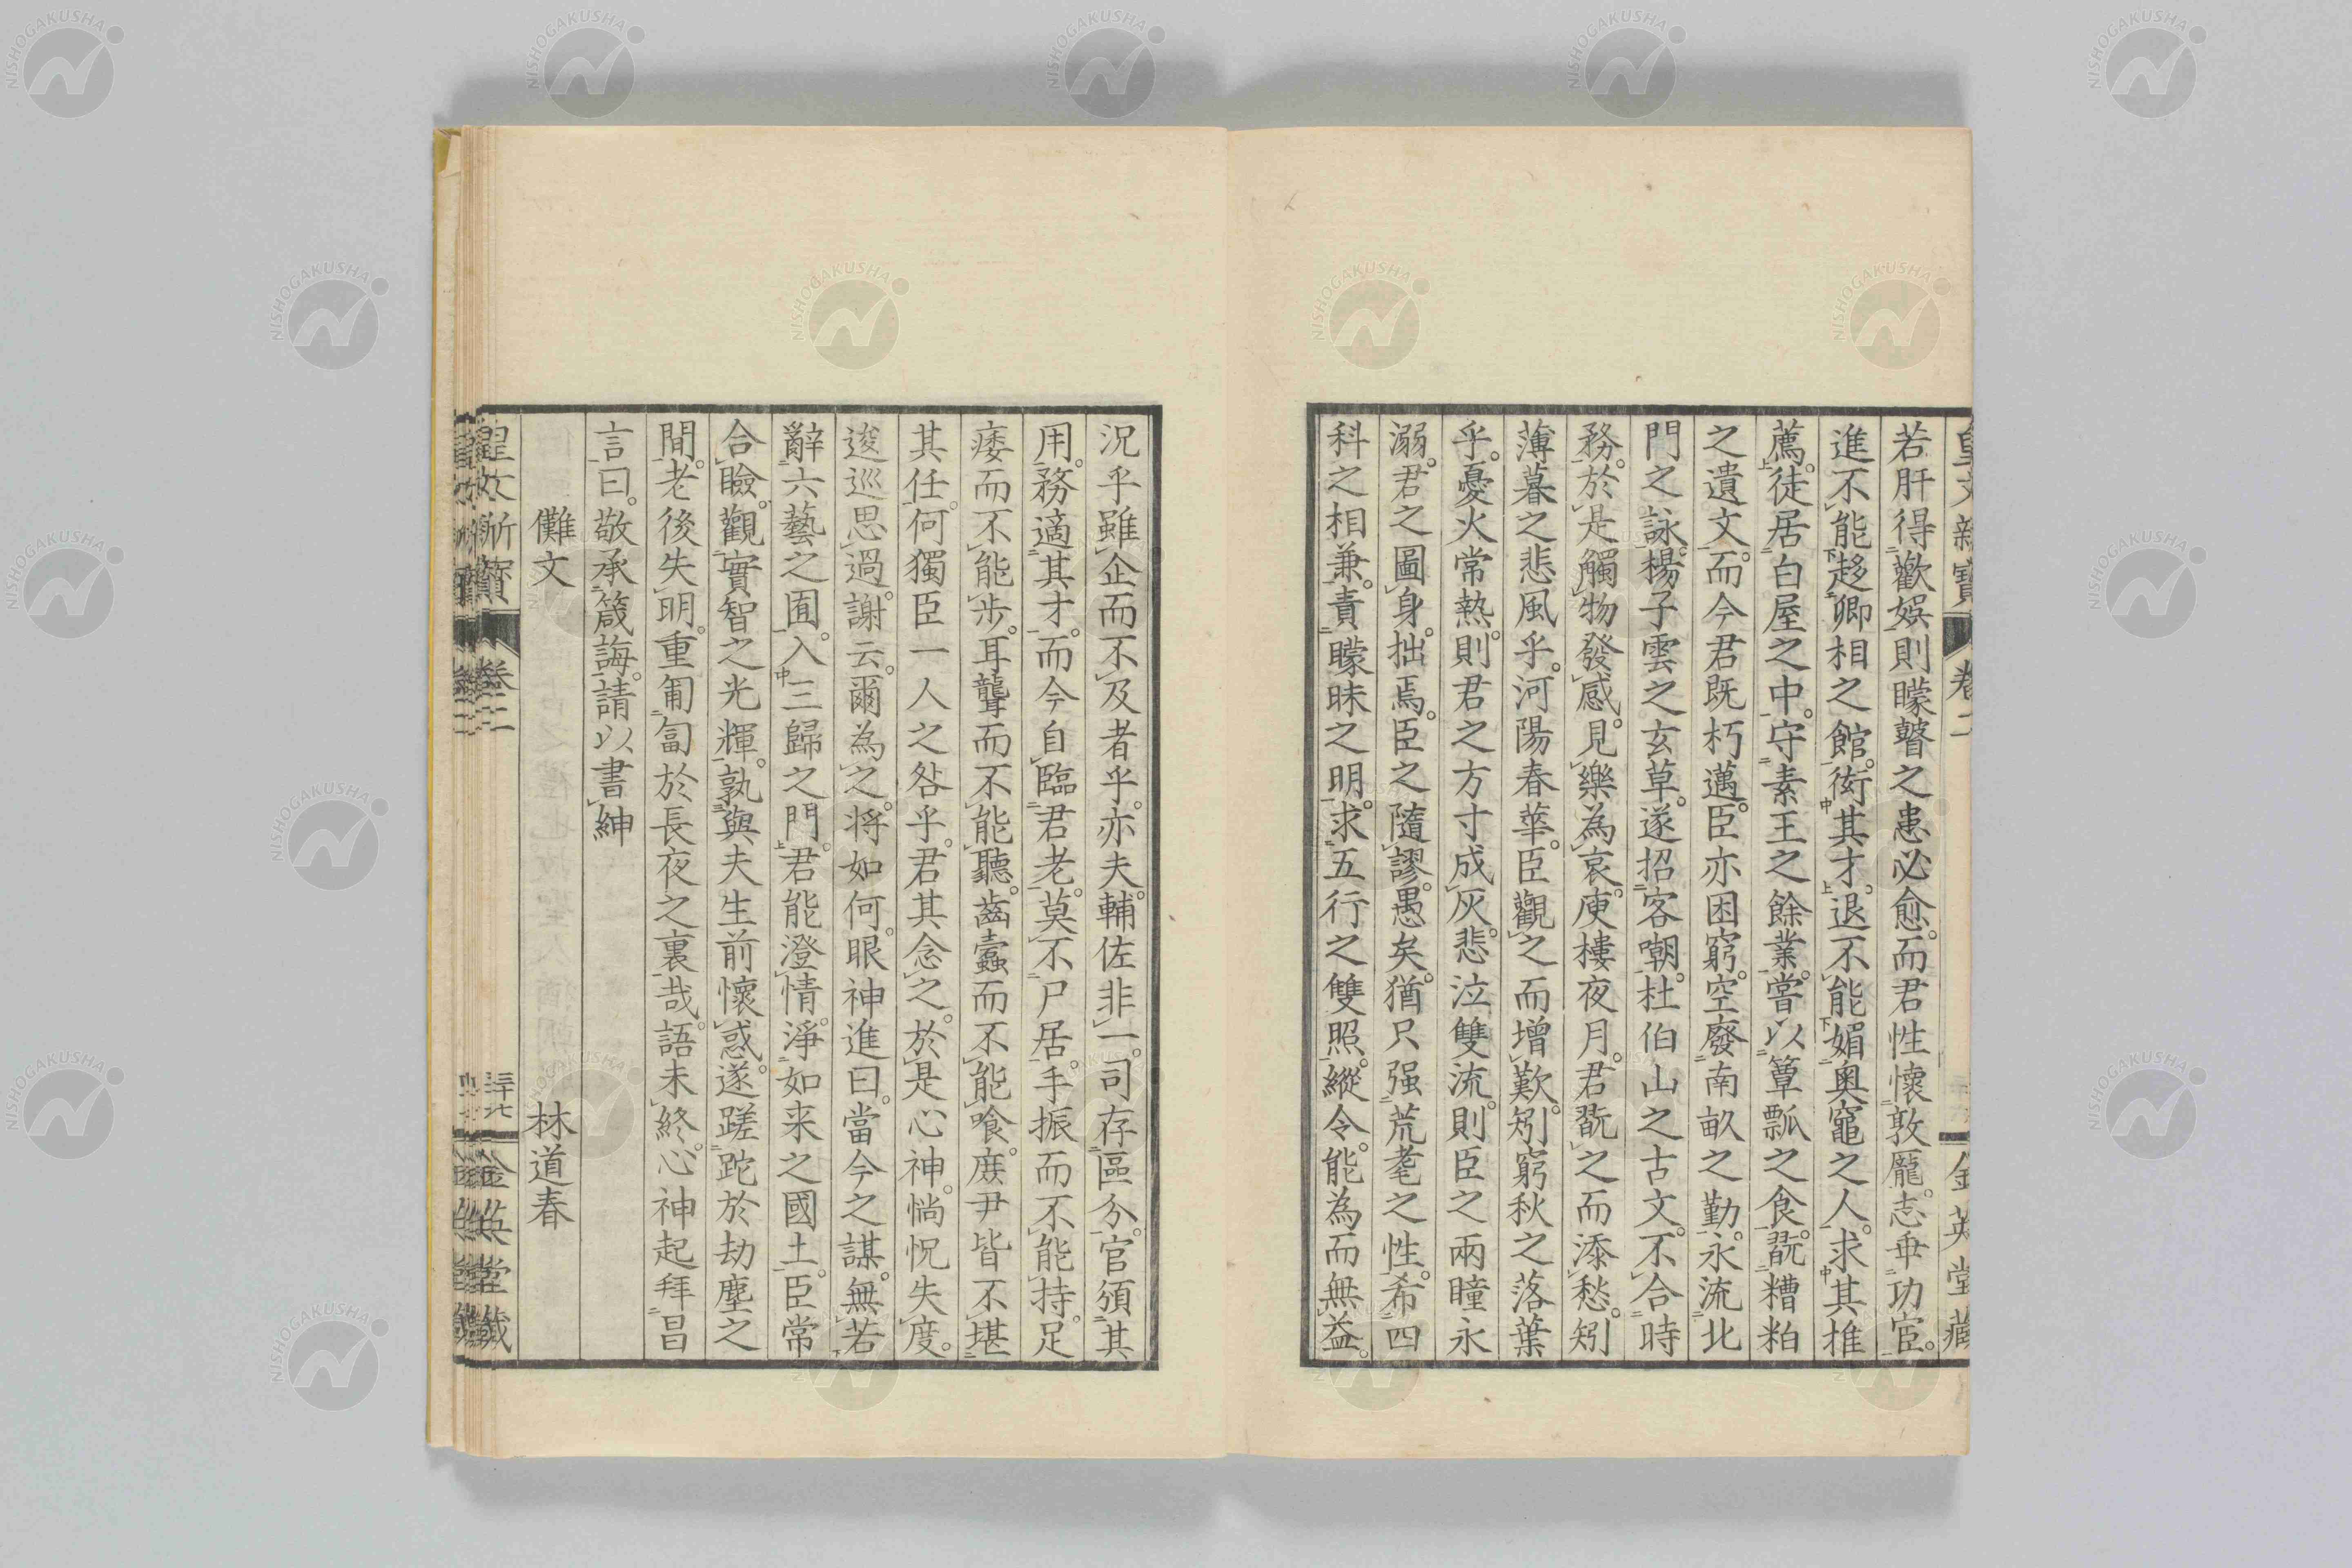 若肝得歡娯則矇瞽之患必愈。而君性懷敦厖。志乖功宦。
進不能趍卿相之館。衒其才。退不能媚奥竈之人。求其推
薦。徒居白屋之中。守素王之餘業。嘗以簞瓢之食。翫糟粕
之遺文。而今君既朽邁。臣亦困窮。空廢南畝之勤。永流北
門之詠。楊子雲之玄草。遂招客嘲。杜伯山之古文。不合時
務。於是觸物發感。見樂為哀。庾樓夜月。君翫之而添愁。矧
薄暮之悲風乎。河陽春華。臣觀之而増歎。矧窮秋之落葉
乎。憂火常熱。則君之方寸成灰。悲泣雙流。則臣之兩瞳永
溺。君之圖身。拙焉。臣之隨謬。愚矣。猶只强荒耄之性。希四
科之相兼。責矇昧之明。求五行之雙照。縱令。能為而無益。
况乎雖企而不及者乎。亦夫。輔佐非一。司存區分。官須其
用。務適其才。而今自臨君老。莫不尸居。手振而不能持。足
痿而不能步。耳聾而不能聽。齒蠹而不能喰。庶尹皆不堪
其任。何獨臣一人之咎乎。君其念之。於是心神。惝怳失度。
逡巡思過。謝云。爾為之。将如何。眼神進曰。當今之謀。無若
辭六藝之囿。入三歸之門。君能澄情。淨如来之國土。臣常
合瞼。觀實智之光輝。孰與夫生前懷惑。遂蹉跎於劫塵之
間。老後失明。重匍匐於長夜之裏哉。語未終。心神起拜昌
言曰。敬承箴誨。請以書紳
儺文　林道春
皇文新寶　卷二　金英堂藏